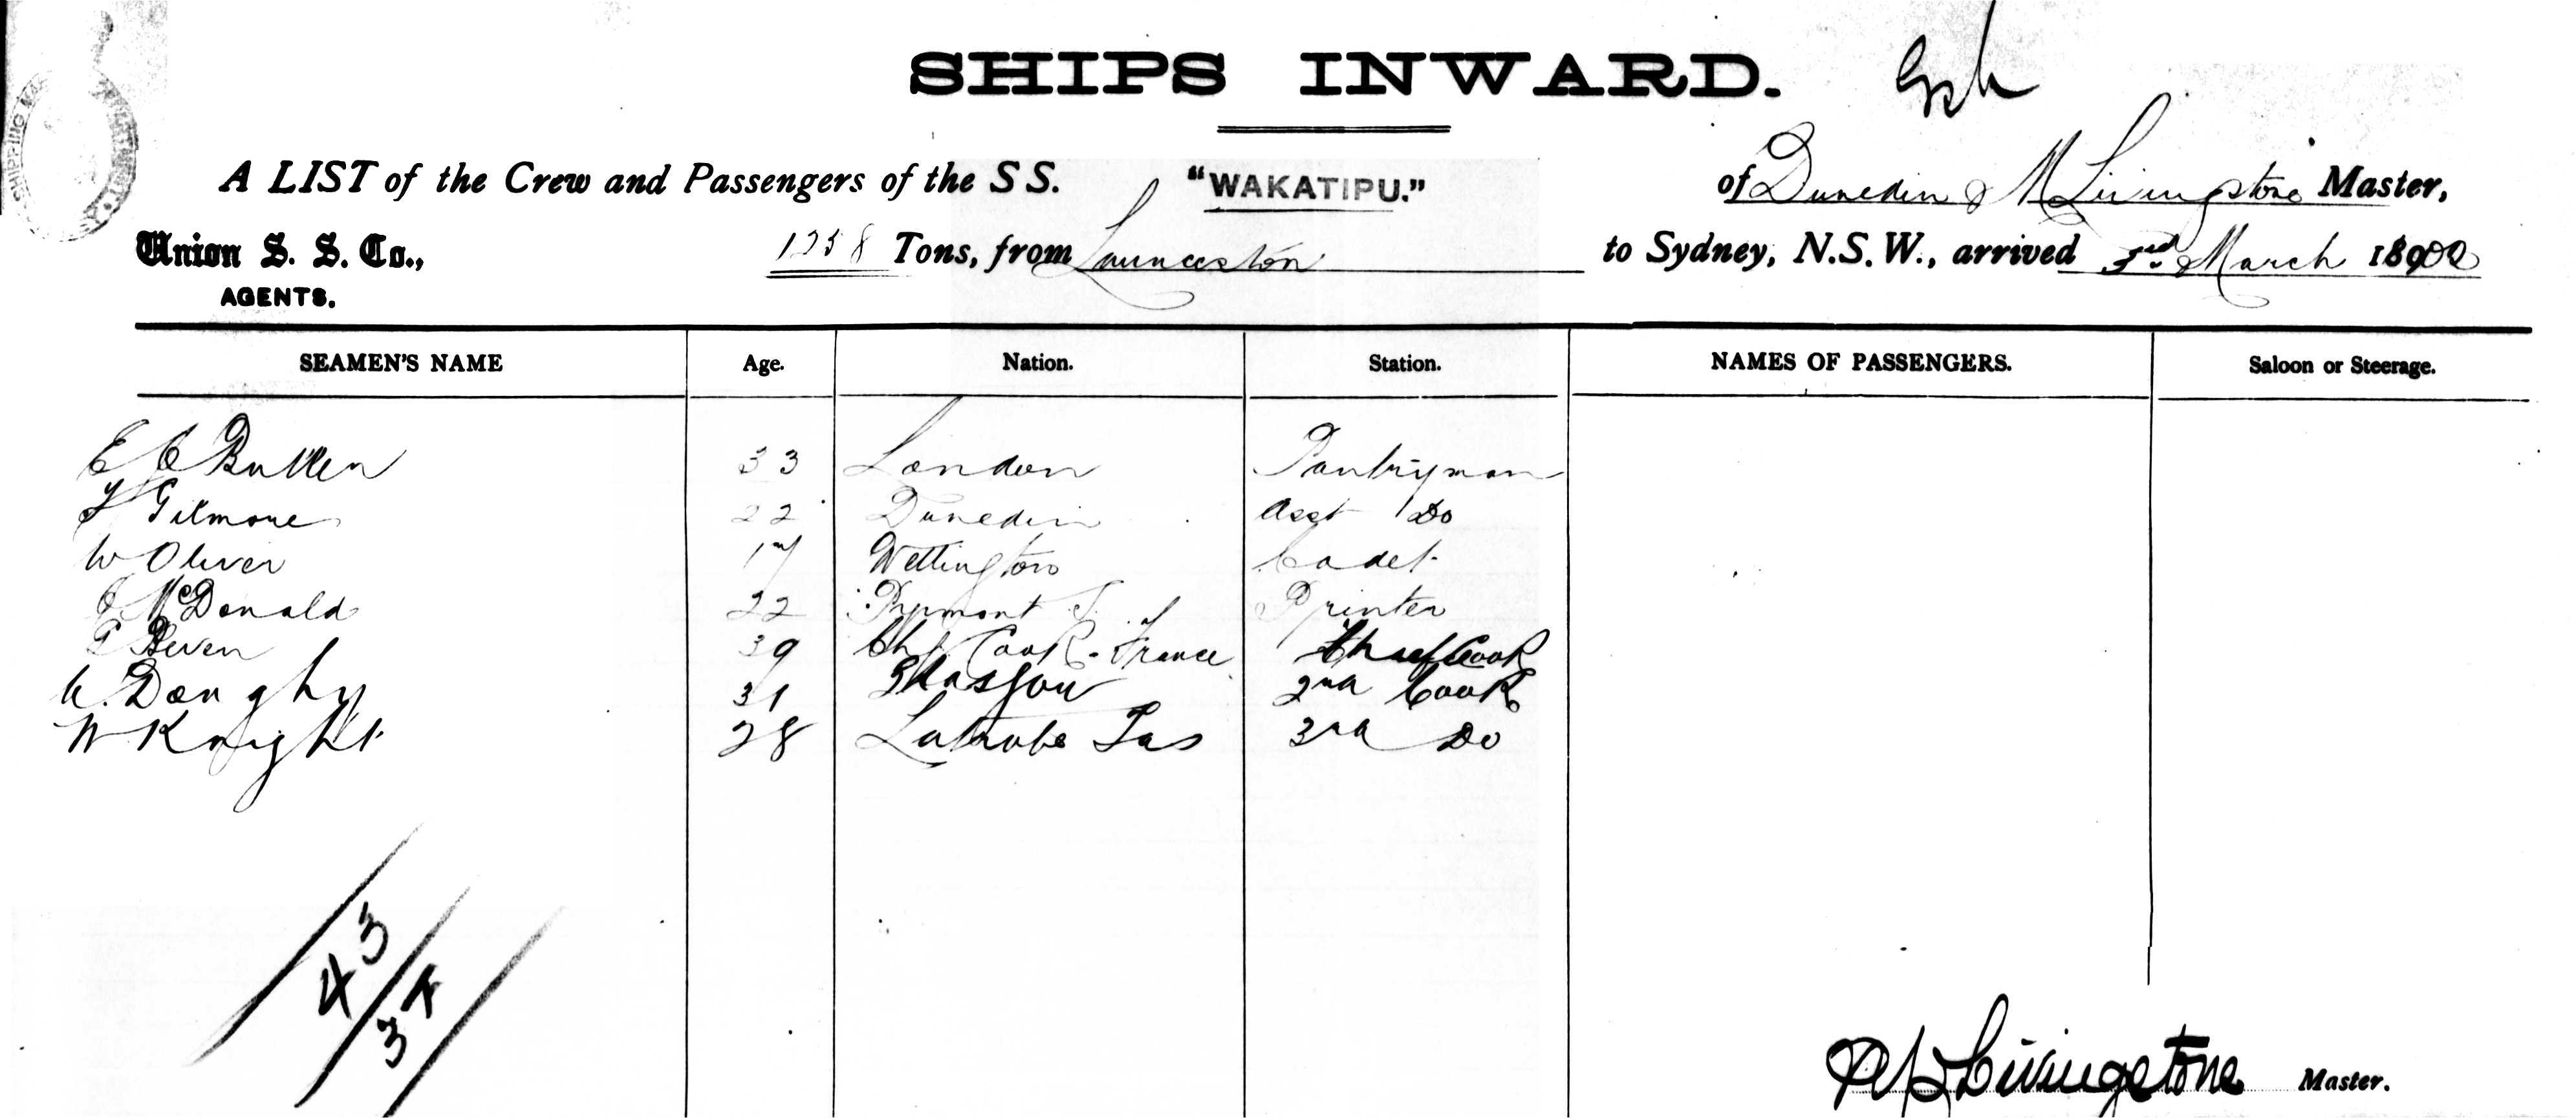 SHIPS INWARD.
A LIST of the Crew and Passengers of the SS. "WAKATIPU." of Dunedin Livingstone Master,
Union S. S. Co., 1258 Tons, from Launceston to Sydney, N.S.W., arrived 3rd March 1890
AGENTS.
SEAMEN'S NAME Age. Nation. Station. NAMES OF PASSENGERS. Saloon or Steerage.
E 33 London Pantryman
Gilmore 22 Dunedin Asst Do
W Oliver 17 Wellington Cadet
McDonald 22 Printer
Beven 39 Chf Cook - France Chief Cook
Donghy 31 Glasgow 2nd Cook
W Knight 28 Latrobe Tas 3rd Do
43
37
Livingstone Master.